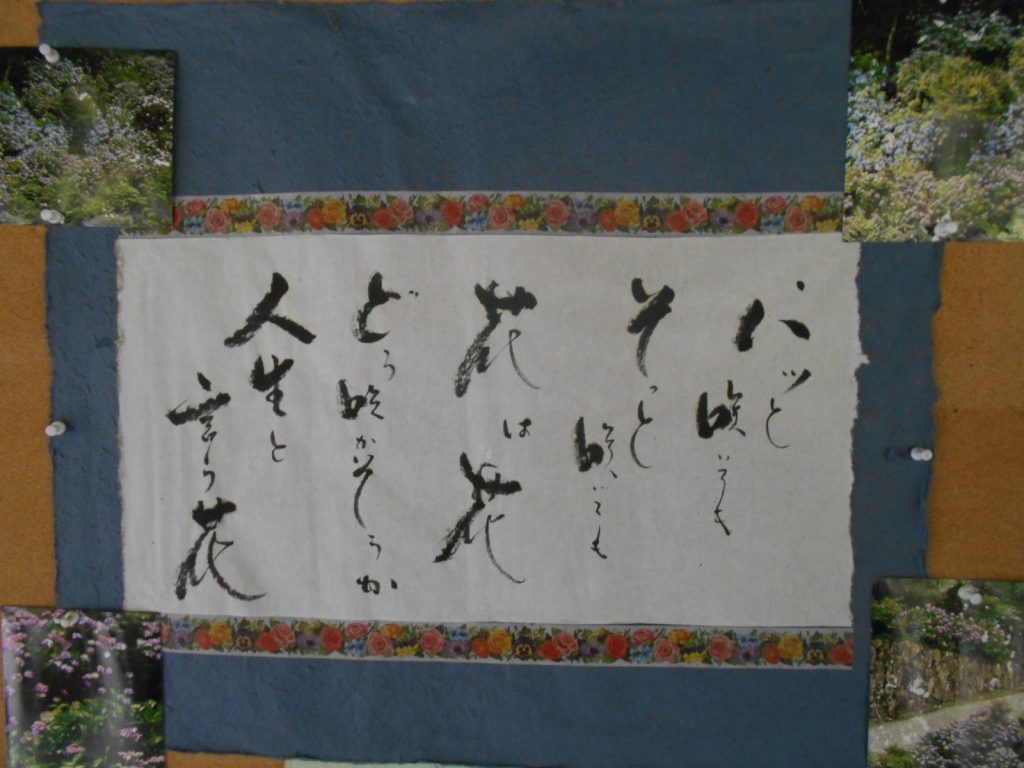 パッと
咲いても
そっと
咲いても
花は花
どう咲かそうか
人生と
言う花